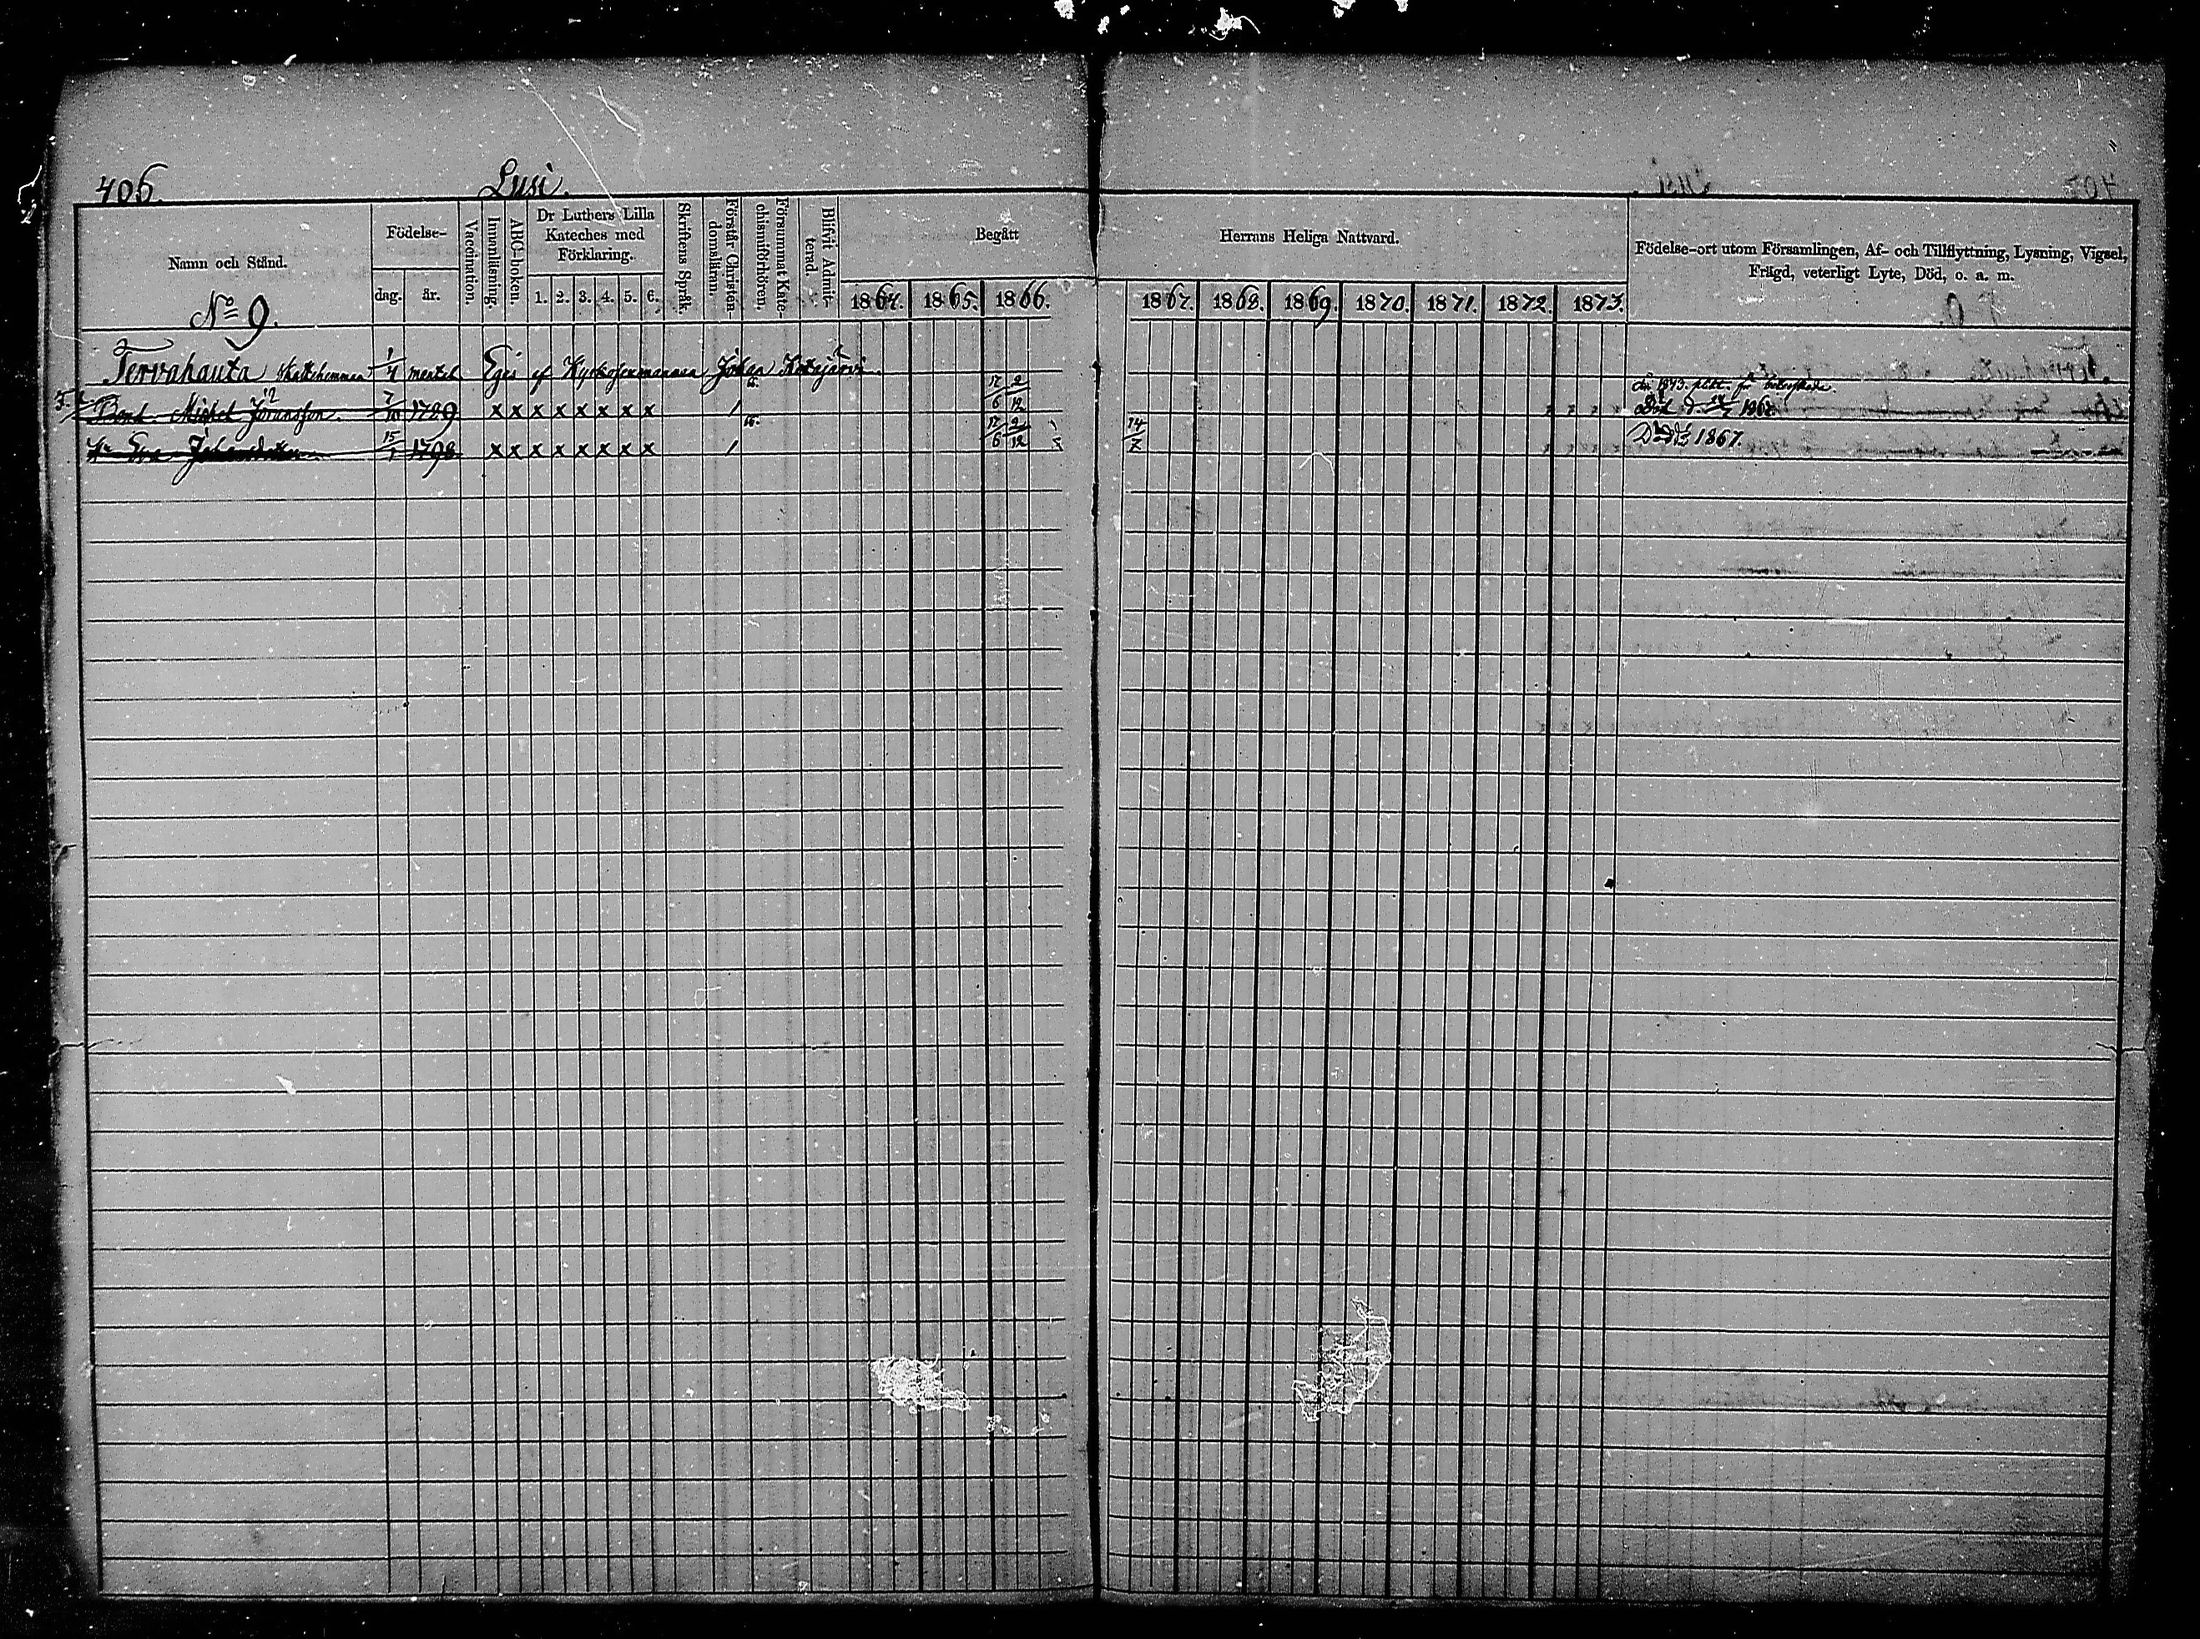 406.
Lusi.
Namn och Stånd.
Födelse-
dag.
år.
Vaccination.
Innanläsning.
ABC-boken.
Dr Luthers Lilla
Kateches med
Förklaring.
1. 2. 3. 4. 5. 6.
Skriftens Språk.
Förstår Christen-
domsläran.
Försummat Kate-
chismiförhören.
Blifvit Admit-
terad.
Begått
Herrans Heliga Nattvard.
1864. 1865. 1866.
1867. 1868. 1869. 1870. 1871. 1872. 1873.
Födelse-ort utom Församlingen, Af- och Tillflyttning, Lysning, Vigsel,
Frägd, veterligt Lyte, Död, o. a. m.
No 9.
Tervahauta skattehemman 1/4 mantal Eges af Kyrkosexmannen Johan
Bond. Michel Göransson 7/10 1789 x x x x x x x x 17/6 2/12 Död 1862
H. Eva Johansdotter 15/1 1798 x x x x x x x x 17/6 2/12 14/7 Död 1867.